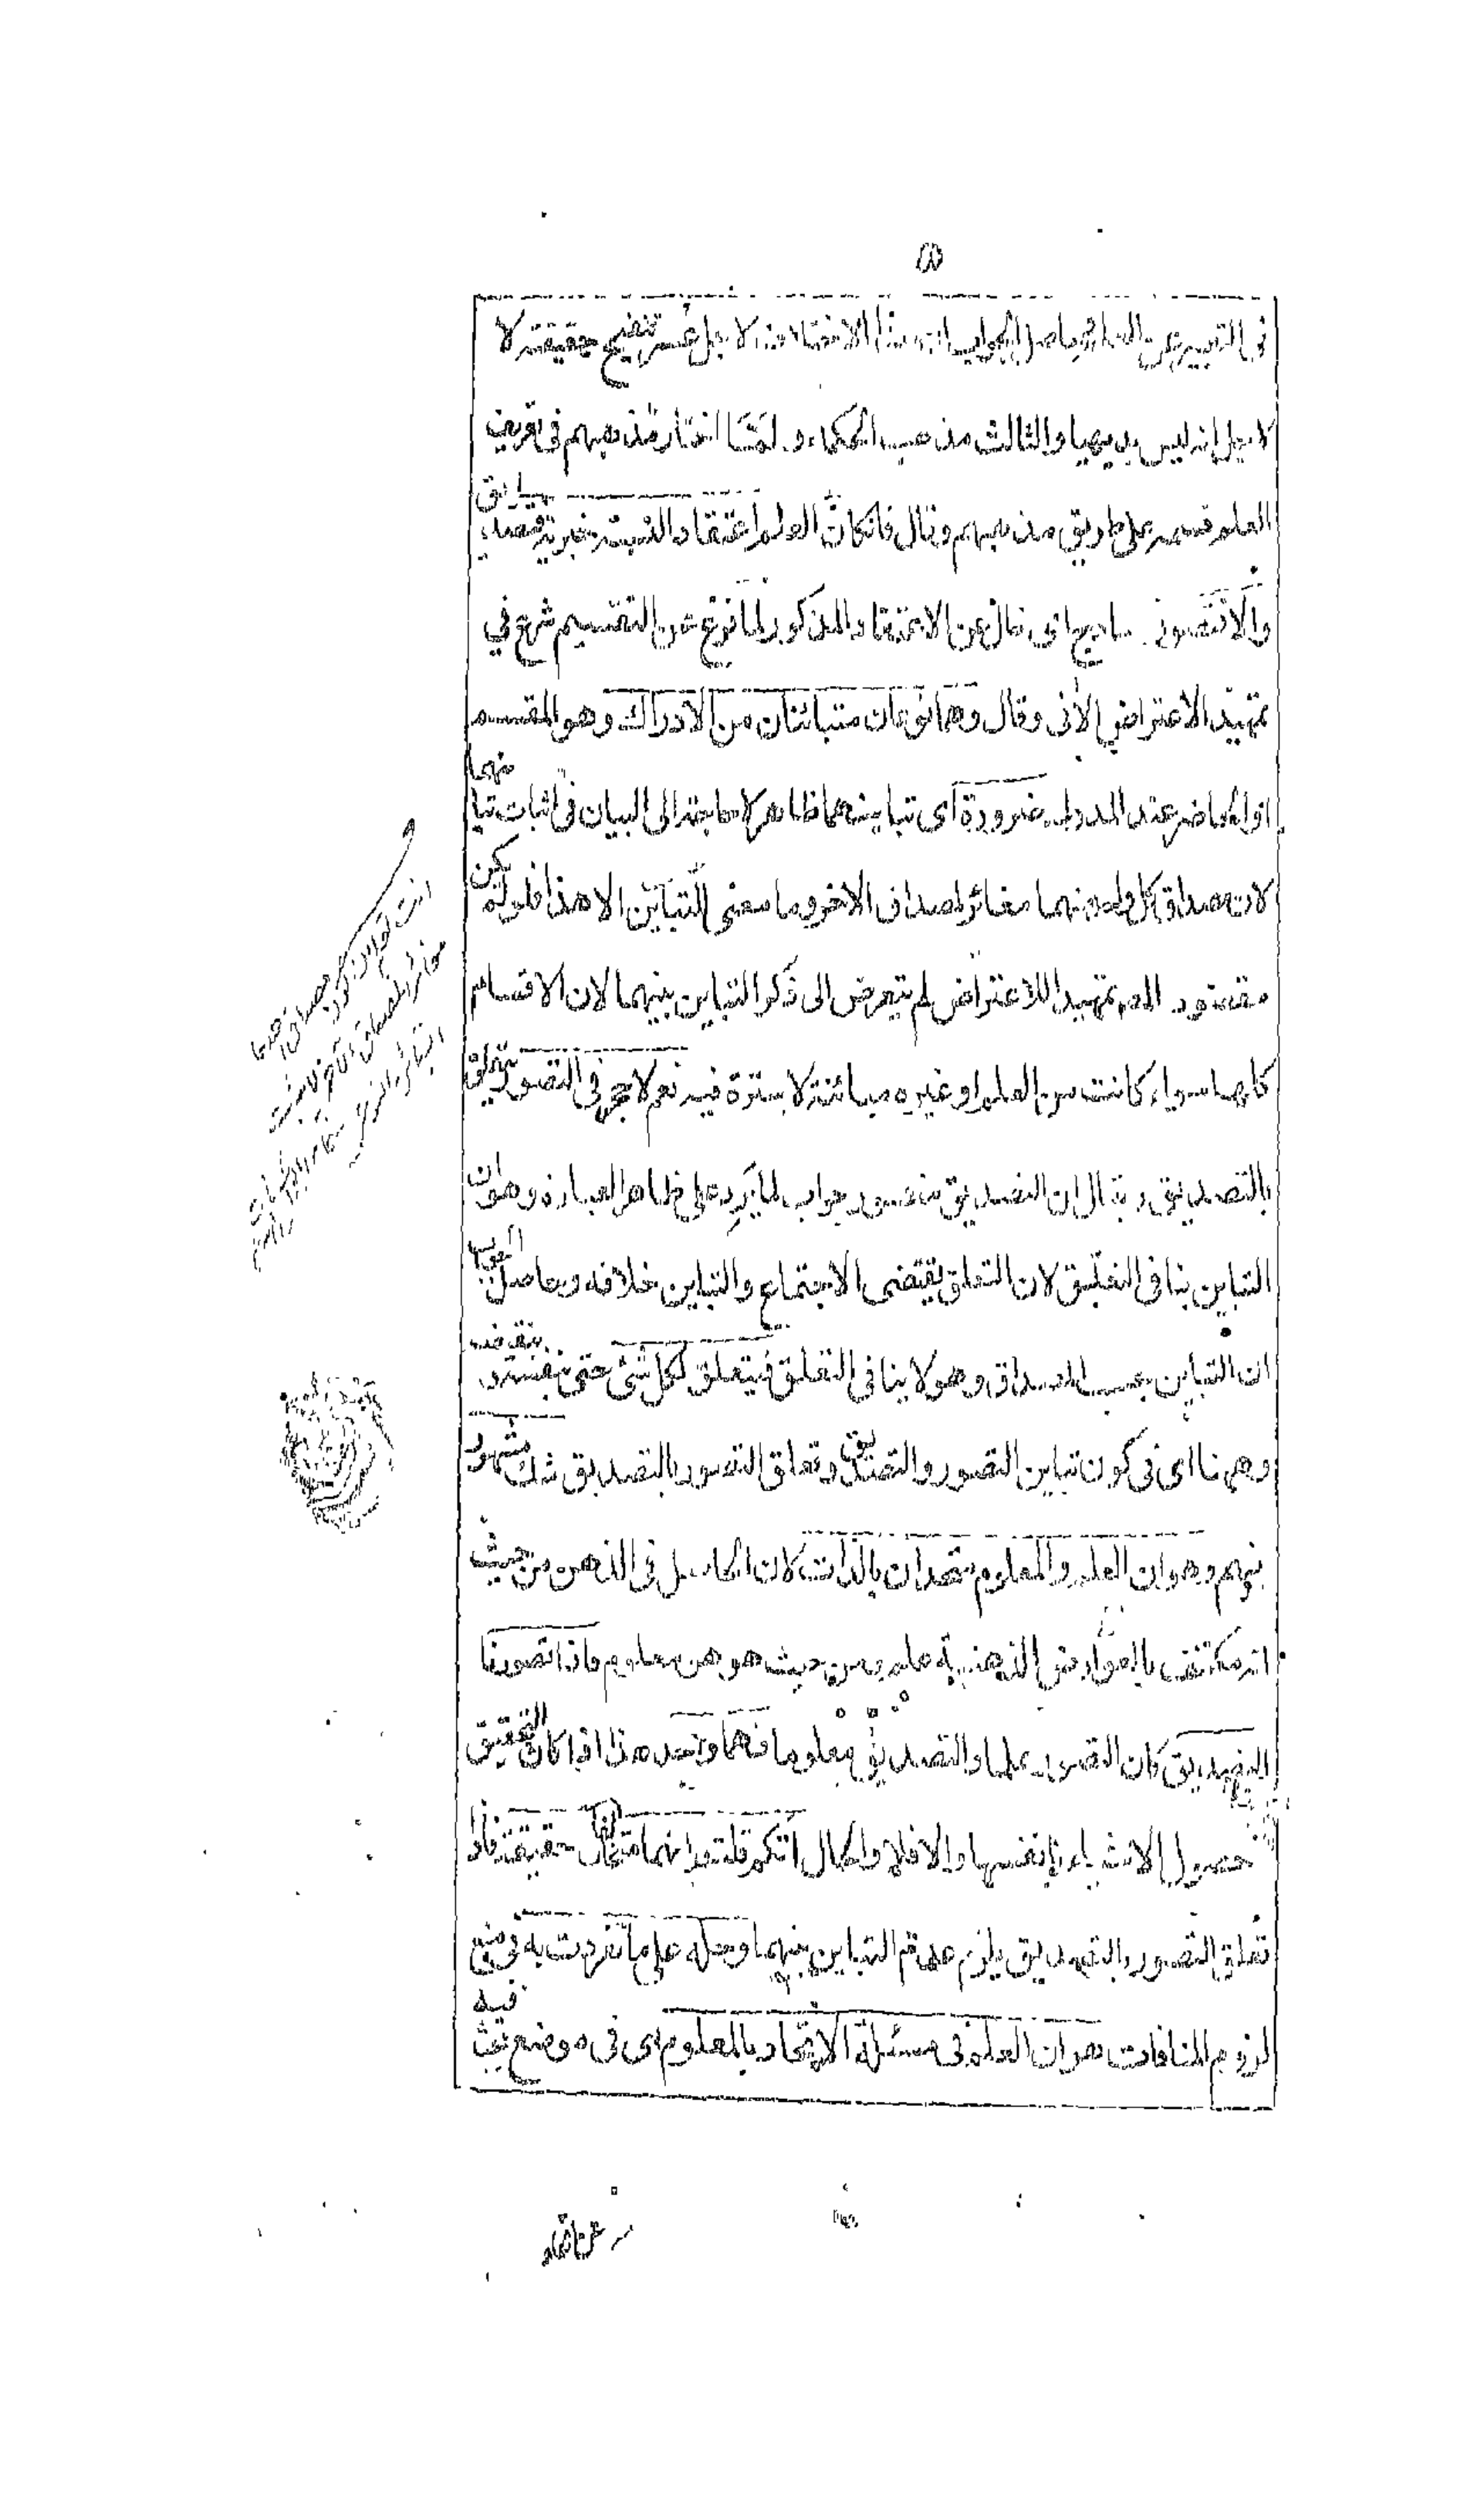 في التعبير عن العلم وحاصل الجواب ان هذا الاختلاف لاجل عسر تنقيح حقيقته لا
لاجل انه ليس بديهيا والثالث مذهب الحكماء ولما اختار مذهبهم في تعريف
العلم قسمه على طريق مذهبهم وقال فانكان العلم اعتقاد النسبة خبرية فتصديق
والا فتصور ساذج اى خال عن الاعتقاد المذكور لما فرغ عن التقسيم شرع في
تمهيد الاعتراض الآتى وقال وهما نوعان متبائنان من الادراك وهو المقسم
اذ الحاضر عند المدرك ضرورة اى تباينهما ظاهر لا حاجة الى البيان فى اثبات تباينهما
لان مصداق كل واحد منهما مغائر لمصداق الاخر وما معنى التباين الا هذا فلو لم يكن
مقصود المص تمهيدا للاعتراض لم يتعرض الى ذكر التباين بينهما لان الاقسام
كلها سواء كانت من العلم او غيره مبائنة لا سترة فيه نعم لا حجر فى التصور فيتعلق
بالتصديق ويقال ان التصديق متصور جواب لما يرد على ظاهر العبارة وهو ان
التباين ينافى التعلق لان التعلق يقتضى الاجتماع والتباين خلافه وحاصل الجواب
ان التباين بحسب المصداق وهو لا ينافى التعلق فيتعلق بكل شئ حتى بنفسه ونقيضه
وههنا اى فى كون تباين التصور والتصديق وتعلق التصور بالتصديق شك مشهور
بينهم وهو ان العلم والمعلوم متحدان بالذات لان الحاصل فى الذهن من حيث
انه مكتنف بالعوارض الذهنية علم ومن حيث هو هو معلوم فاذا تصورنا
التصديق كان التصور علما والتصديق معلوما فهما واحد هذا اذا كان التحقيق
حصول الاشياء بانفسها والا فلا والحال انكم قلتم انهما متخالفان حقيقة فاذا
تعلق التصور بالتصديق يلزم عدم التباين بينهما وحله على ما تفردت به فى منع
لزوم المنافات هو ان العلم فى مسئلة الاتحاد بالمعلوم اى فى موضع يثبت فيه